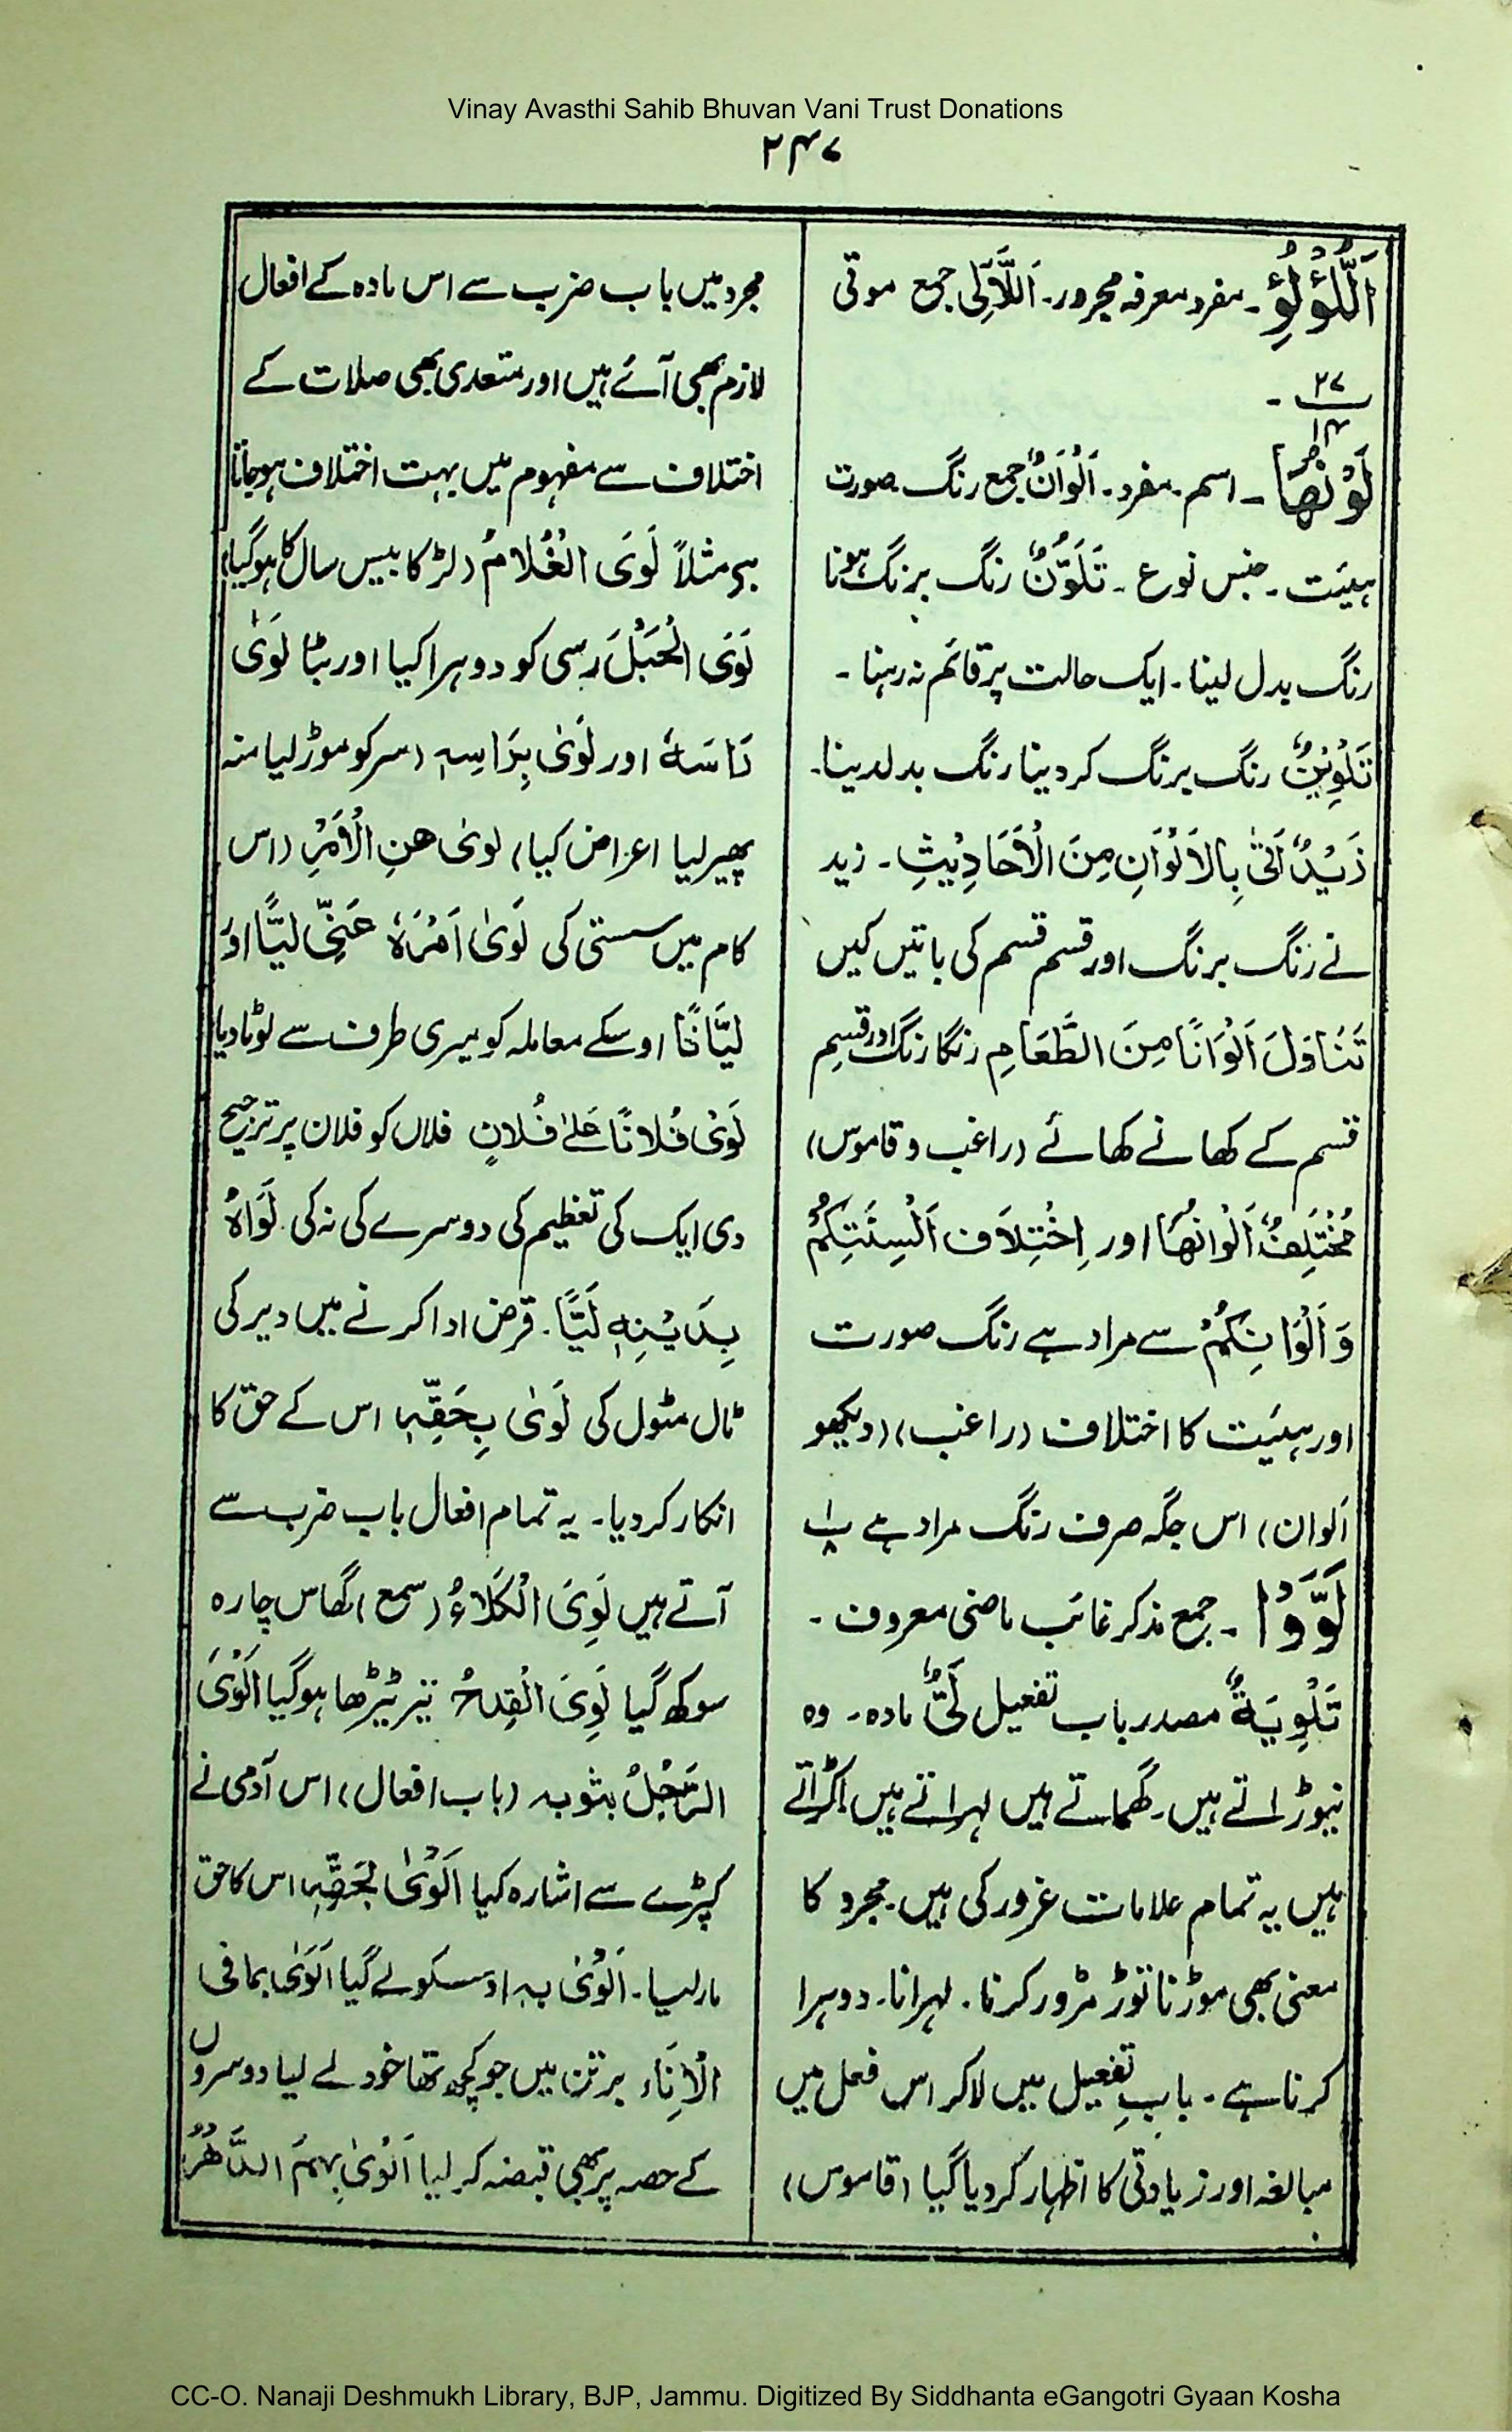 Vinay Avasthi Sahib Bhuvan Vani Trust Donations
۲۴۷
اَللُّؤْلُؤِ۔ مفرد معرفہ مجرور۔ اَللَّآلِیْ جمع موتی
۲۷
۱۴ ۔
لَوْنُهَا ۔ اسم۔ مفرد۔ اَلْوَانٌ جمع رنگ۔ صورت
ہیئت۔ جنس نوع۔ تَلَوُّنٌ رنگ برنگ ہونا
رنگ بدل لینا۔ ایک حالت پر قائم نہ رہنا۔
تَلْوِیْنٌ رنگ برنگ کر دینا رنگ بدلدینا۔
زَیْدٌ اَتیٰ بِالاَلْوَانِ مِنَ الْاَحَادِیْثِ۔ زید
نے رنگ برنگ اور قسم قسم کی باتیں کیں
تَنَاوَلَ اَلْوَانًا مِنَ الطَّعَامِ رنگا رنگ اور قسم
قسم کے کھانے کھائے (راغب و قاموس)
مُخْتَلِفٌ اَلْوَانُهَا اور اِخْتِلَاف اَلْسِنَتِكُمْ
وَ اَلْوَانِكُمْ سے مراد ہے رنگ صورت
اور ہیئت کا اختلاف (راغب) (دیکھو
اَلوان) اس جگہ صرف رنگ مراد ہے ۱/۸
لَوَّوْا ۔ جمع مذکر غائب ماضی معروف۔
تَلْوِیَةٌ مصدر باب تفعیل لَیٌّ مادہ۔ وہ
نیوڑاتے ہیں۔ گھماتے ہیں لہراتے ہیں اکڑاتے
ہیں یہ تمام علامات غرور کی ہیں۔ مجرد کا
معنی بھی موڑنا توڑ مڑور کرنا۔ لہرانا۔ دوہرا
کرنا ہے۔ بابِ تفعیل میں لاکر اس فعل میں
مبالغہ اور زیادتی کا اظہار کر دیا گیا (قاموس)
مجرد میں باب ضرب سے اس مادہ کے افعال
لازم بھی آئے ہیں اور متعدی بھی صلات کے
اختلاف سے مفہوم میں بہت اختلاف ہو جاتا
ہے مثلاً لَوَی الْغُلَامُ (لڑکا بیس سال کا ہوگیا)
لَوَی الْحَبْلَ رسی کو دوہرا کیا اور بٹا لَوَیٰ
رَاسَہٗ اور لَوَیٰ بِرَاسِہٖ (سر کو موڑ لیا منہ
پھیر لیا اعراض کیا) لوی عنِ الْاَمْرِ (اس
کام میں سستی کی لَویٰ اَمْرَہٗ عَنِّی لَیًّا اور
لَیَّانًا اوسکے معاملہ کو میری طرف سے لوٹا دیا
لَویٰ فُلَانًا عَلیٰ فُلَانٍ فلاں کو فلان پر ترجیح
دی ایک کی تعظیم کی دوسرے کی نہ کی۔ لَوَاہُ
بِدَیْنِہٖ لَیًّا۔ قرض ادا کرنے میں دیر کی
ٹال مٹول کی لَویٰ بِحَقِّہٖ اس کے حق کا
انکار کر دیا۔ یہ تمام افعال باب ضرب سے
آتے ہیں لَوِیَ الْکَلَاءُ (سمع) گھاس چارہ
سوکھ گیا لَوِیَ الْقِدْحُ تیر ٹیڑھا ہوگیا اَلْوَیٰ
الرَّجُلُ بثوبہ (باب افعال) اس آدمی نے
کپڑے سے اشارہ کیا اَلْویٰ بحَقِّہٖ اس کا حق
مار لیا۔ اَلْویٰ بہ اوسکو لے گیا اَلْوَیٰ بما فی
الْاِنَاء برتن میں جو کچھ تھا خود لے لیا دوسروں
کے حصہ پر بھی قبضہ کر لیا اَلْویٰ بِہِمُ الدَّهْرُ
CC-O. Nanaji Deshmukh Library, BJP, Jammu. Digitized By Siddhanta eGangotri Gyaan Kosha